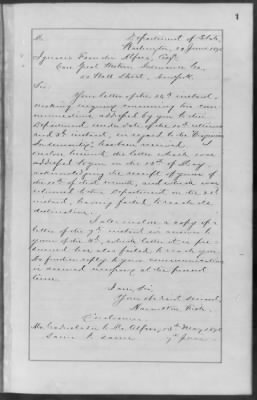 1
Department of State,
Washington, 29 June 1876
Esq.
Care Great Western Insurance Co.
Wall Street, New York.
Sir:
Your letter of the 24th instant,
making inquiry concerning two com-
munications addressed by you to this
Department under date of the 10th ultimo
and 3d instant, in regard to the "Virginius
Indemnity" has been received. I
enclose herewith the letter which was
addressed to you on the 13th of May,
acknowledging the receipt of yours of
the 10th of that month, and which was
returned to this Department on the
instant, having failed to reach its
destination.
I also enclose a copy of a
letter of the 7th instant in answer to
yours of the 3d, which letter it is pre-
sumed has also failed to reach you.
No further reply to your communications
is deemed necessary at the present
time.
I am, Sir,
Your obedient servant,
Hamilton Fish.
Enclosures:
Mr. Cadwalader to Mr. Alfaro, 13th May 1876
Same to same 7th June